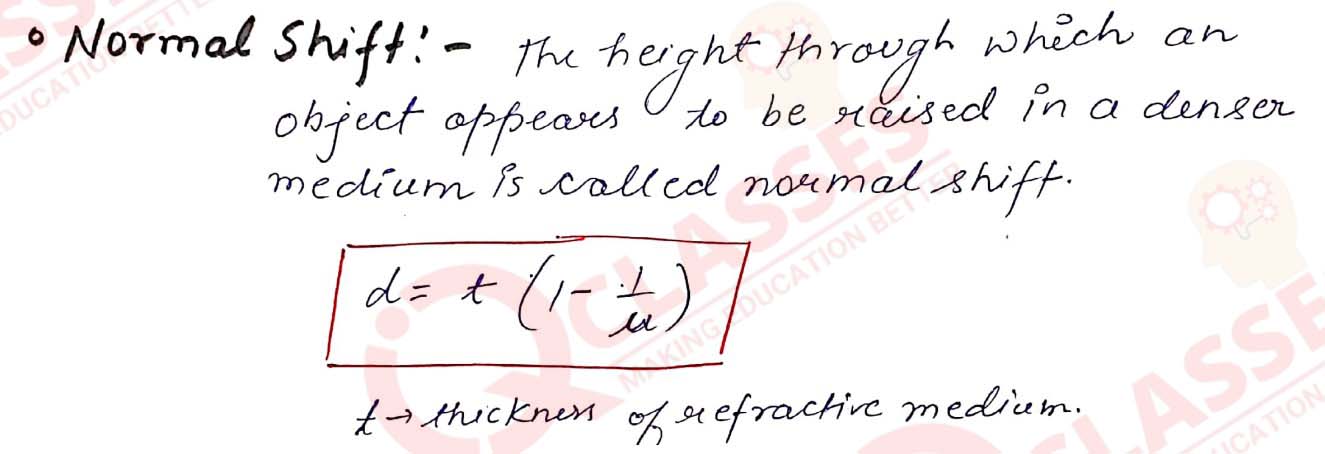 • Normal Shift:- The height through which an
object appears to be raised in a denser
medium is called normal shift.
d = t (1 - 1/μ)
t → thickness of refractive medium.
CLASSES
MAKING EDUCATION BETTER